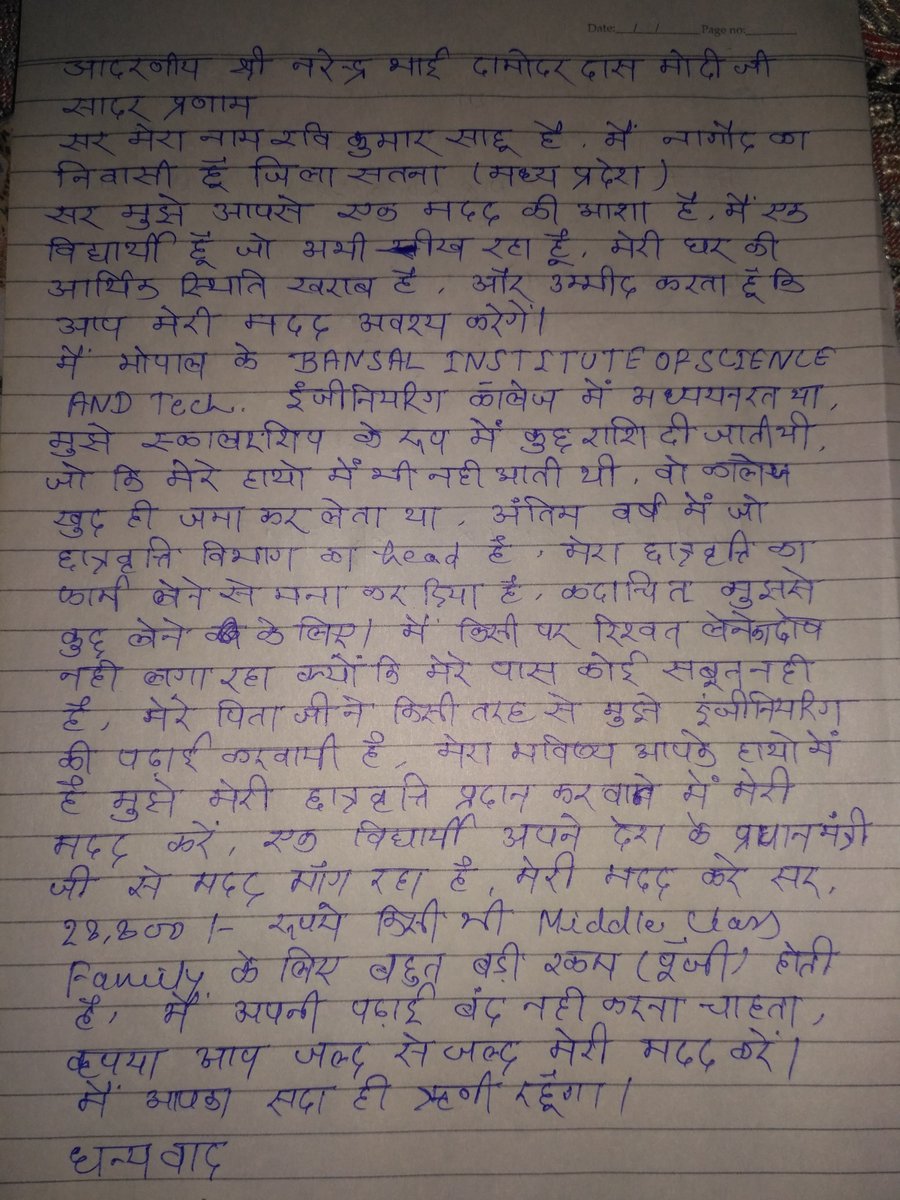 Date: __/__/____ Page no:______
आदरणीय श्री नरेन्द्र भाई दामोदर दास मोदी जी
सादर प्रणाम
सर मेरा नाम रवि कुमार साहू है. मैं नागौद का
निवासी हूँ जिला सतना (मध्य प्रदेश)
सर मुझे आपसे एक मदद की आशा है, मैं एक
विद्यार्थी हूँ जो अभी सीख रहा हूँ, मेरी घर की
आर्थिक स्थिति खराब है, और उम्मीद करता हूँ कि
आप मेरी मदद अवश्य करेगें।
मैं भोपाल के BANSAL INSTITUTE OF SCIENCE
AND Tech. इंजीनियरिग कॉलेज में अध्ययनरत था,
मुझे स्कालरशिप के रूप में कुछ राशि दी जाती थी,
जो कि मेरे हाथो में भी नही आती थी, वो कालेज
खुद ही जमा कर लेता था, अंतिम वर्ष में जो
छात्रवृत्ति विभाग का head है, मेरा छात्रवृत्ति का
फार्म लेने से मना कर दिया है, कदाचित मुझसे
कुछ लेने के लिए। मैं किसी पर रिश्वत लेने का दोष
नही लगा रहा क्यों कि मेरे पास कोई सबूत नही
है, मेरे पिता जी ने किसी तरह से मुझे इंजीनियरिग
की पढ़ाई करवायी है, मेरा भविष्य आपके हाथो में
है मुझे मेरी छात्रवृत्ति प्रदान करवाने में मेरी
मदद करें, एक विद्यार्थी अपने देश के प्रधानमंत्री
जी से मदद माँग रहा है, मेरी मदद करे सर,
/- रूपये किसी भी Middle Class
Family के लिए बहुत बड़ी रकम (पूँजी) होती
है, मैं अपनी पढ़ाई बंद नही करना चाहता,
कृपया आप जल्द से जल्द मेरी मदद करें।
मैं आपका सदा ही ऋणी रहूँगा।
धन्यवाद